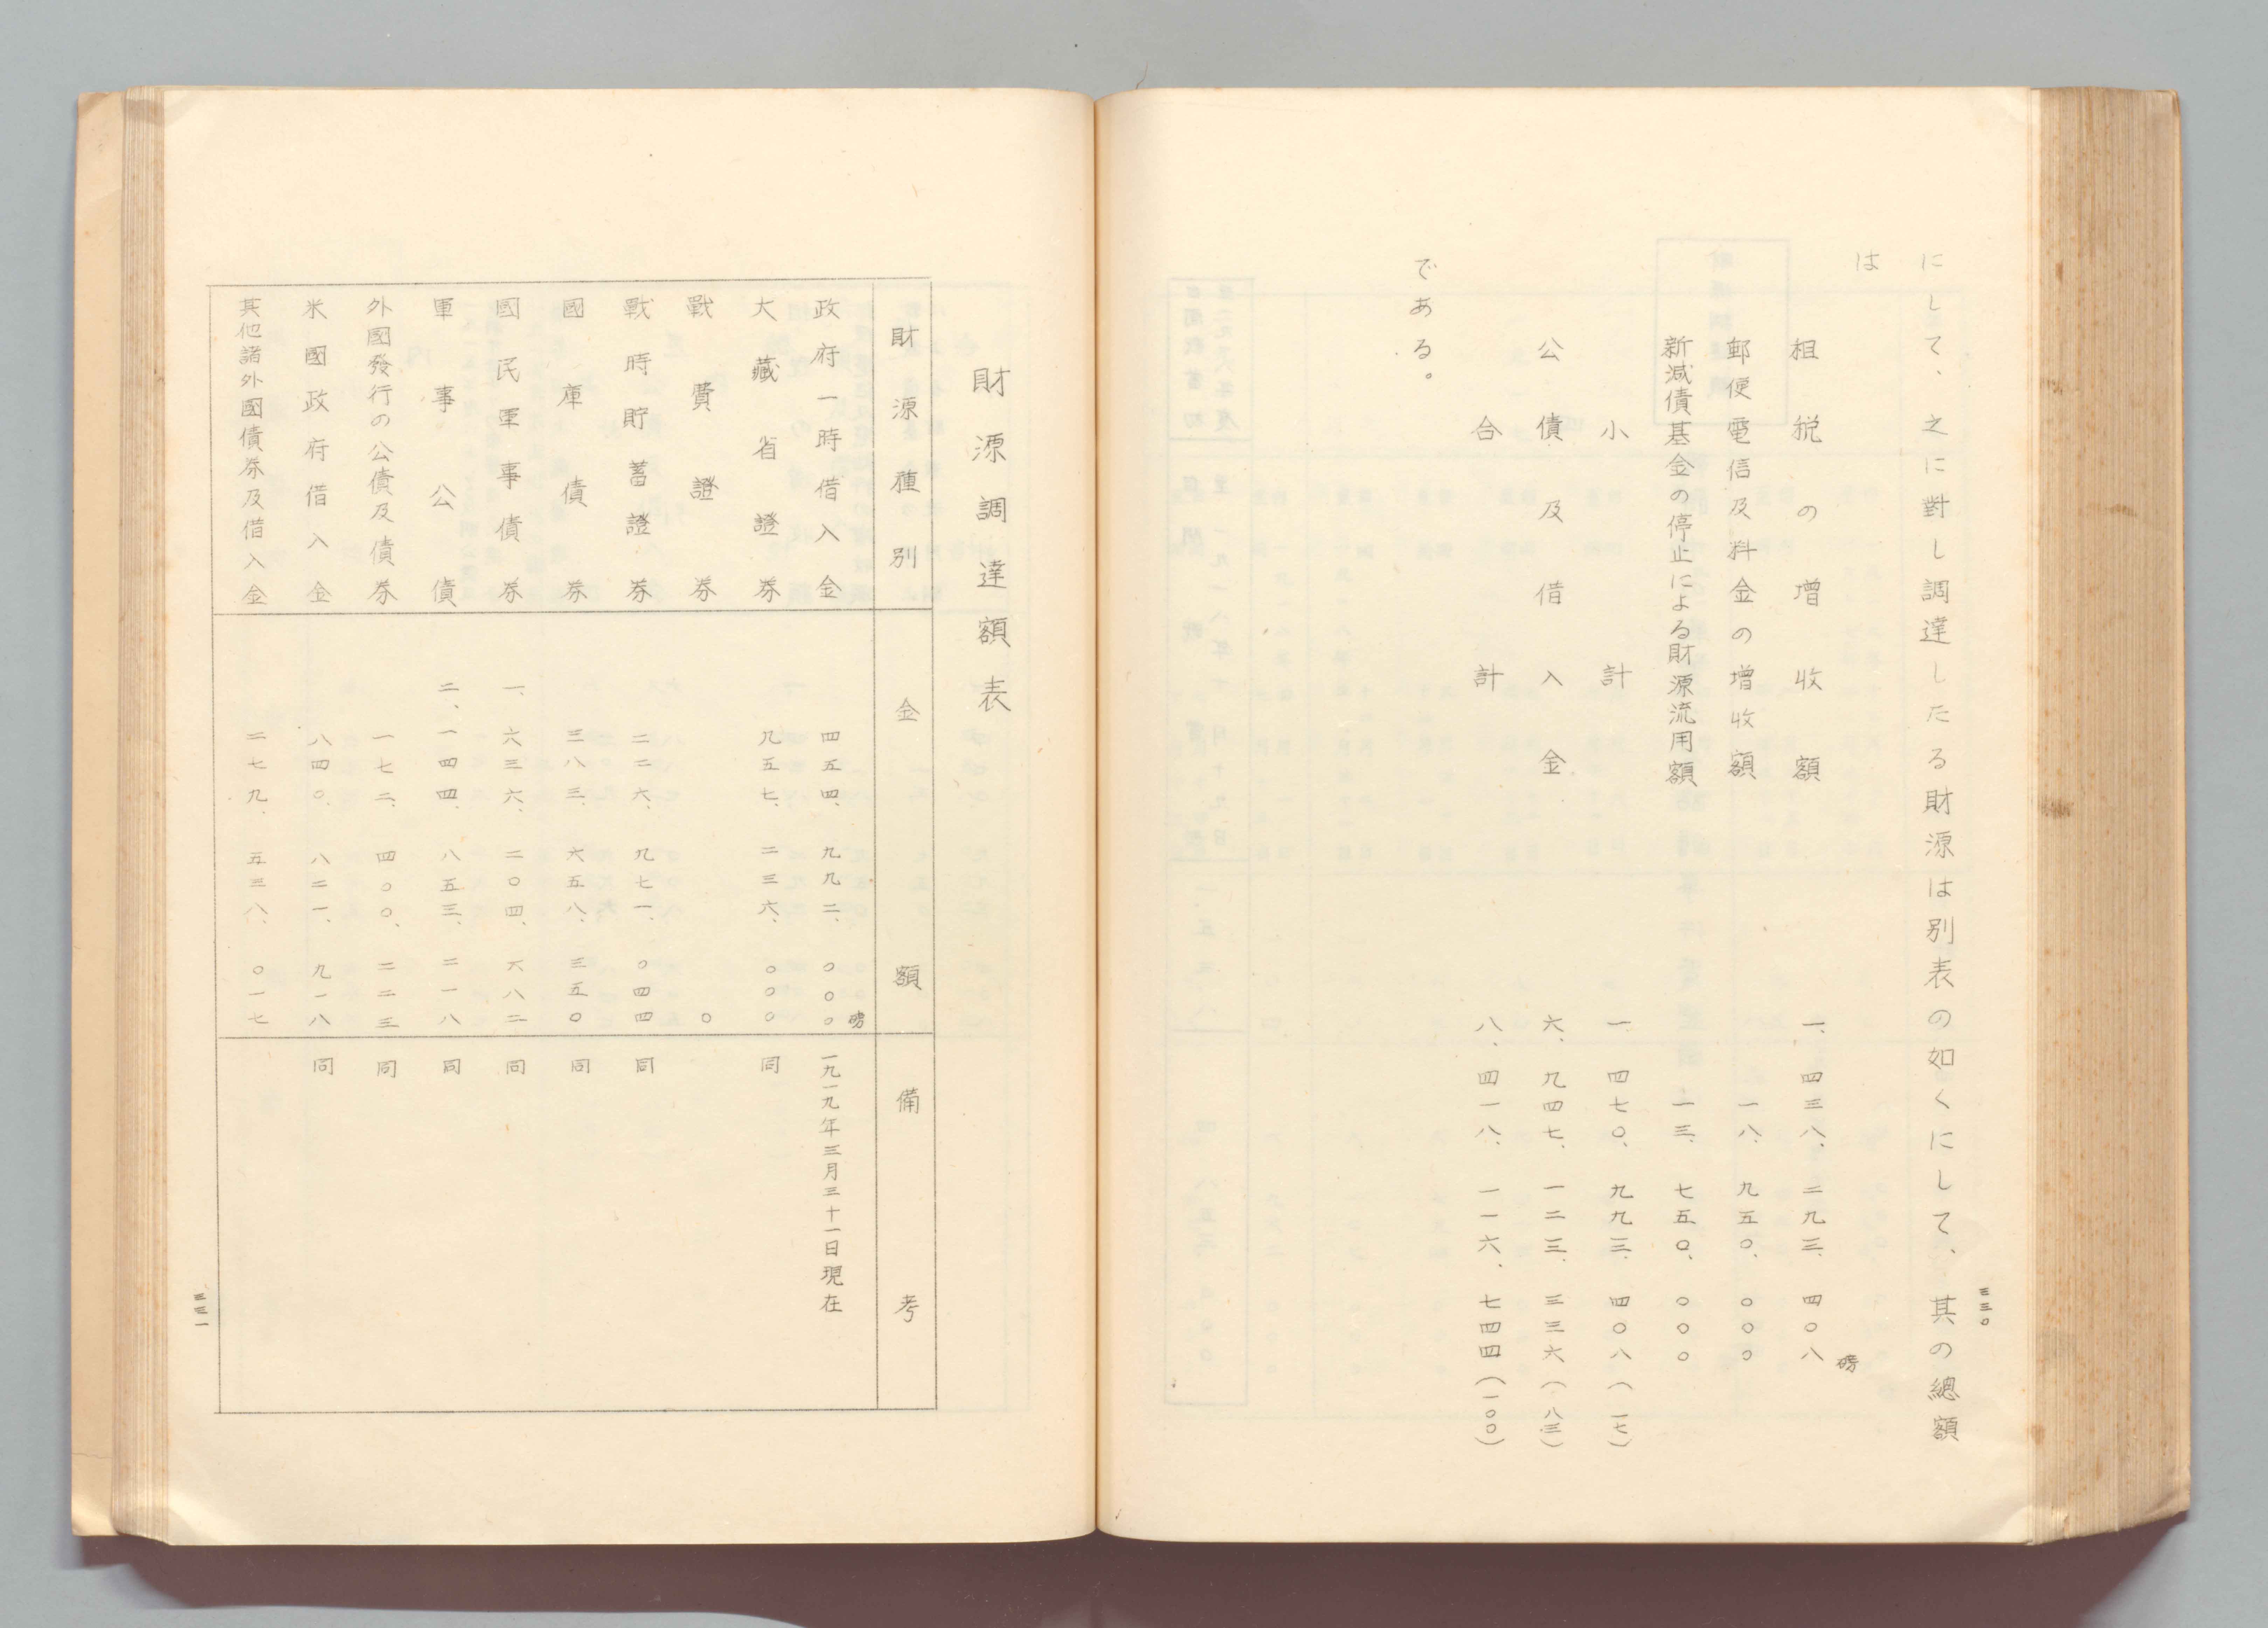 三三〇
にして、之に對し調達したる財源は別表の如くにして、其の總額
は
租税の增收額 一、四三八、二九三、四〇八磅
郵便電信及料金の增收額 一八、九五〇、〇〇〇
新減債基金の停止による財源流用額 一三、七五〇、〇〇〇
小計 一、四七〇、九九三、四〇八（一七）
公債及借入金 六、九四七、一二三、三三六（八三）
合計 八、四一八、一一六、七四四（一〇〇）
である。
財源調達額表
財源種別 金額 備考
政府一時借入金 四五四、九九二、〇〇〇磅 一九一九年三月三十一日現在
大藏省證券 九五七、二三六、〇〇〇 同
戰費證券 〇
戰時貯蓄證券 二二六、九七一、〇四四 同
國庫債券 三八三、六五八、三五〇 同
國民軍事債券 一、六三六、二〇四、六八二 同
軍事公債 二、一四四、八五三、二一八 同
外國發行の公債及債券 一七二、四〇〇、二二三 同
米國政府借入金 八四〇、八二一、九一八 同
其他諸外國債券及借入金 二七九、五三八、〇一七
三三一